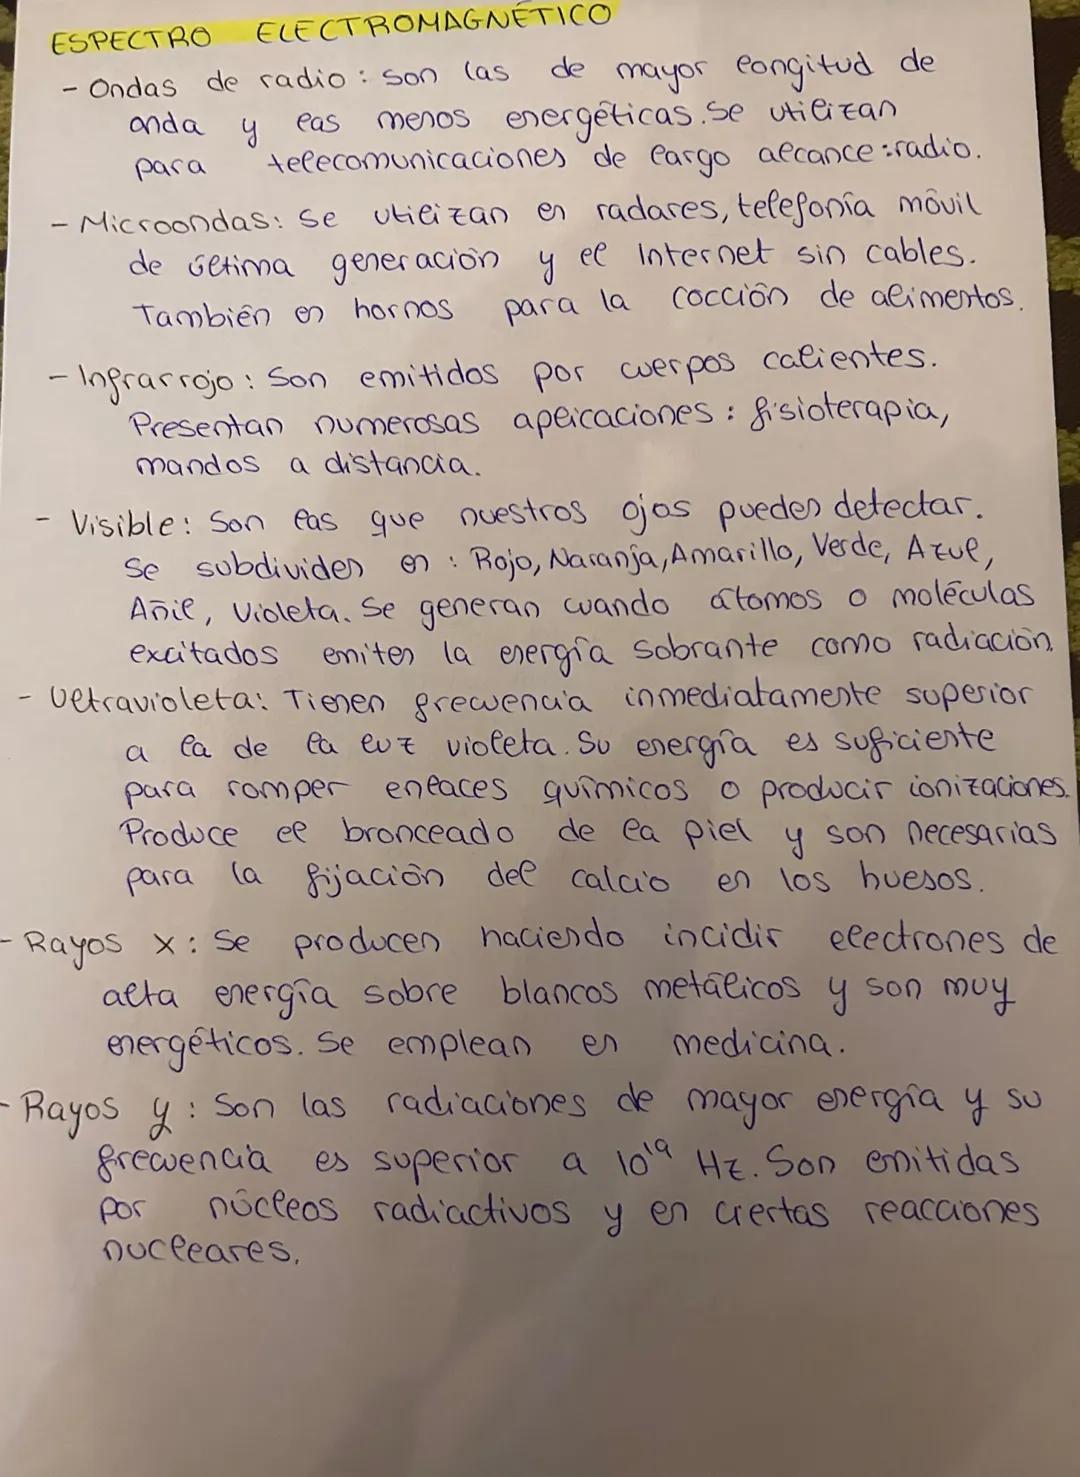 ESPECTRO ELECTROMAGNÉTICO
- Ondas de radio: son las de mayor longitud de
onda y las menos energéticas. Se utilizan
para telecomunicaciones de largo alcance: radio.
- Microondas: Se utilizan en radares, telefonía móvil
de última generación y el Internet sin cables.
También en hornos para la cocción de alimentos.
- Infrarrojo: Son emitidos por cuerpos calientes.
Presentan numerosas aplicaciones: fisioterapia,
mandos a distancia.
- Visible: Son las que nuestros ojos pueden detectar.
Se subdividen en: Rojo, Naranja, Amarillo, Verde, Azul,
Añil, Violeta. Se generan cuando átomos o moléculas
excitados emiten la energía sobrante como radiación.
- Ultravioleta: Tienen frecuencia inmediatamente superior
a la de la luz violeta. Su energía es suficiente
para romper enlaces químicos o producir ionizaciones.
Produce el bronceado de la piel y son necesarias
para la fijación del calcio en los huesos.
- Rayos x: Se producen haciendo incidir electrones de
alta energía sobre blancos metálicos y son muy
energéticos. Se emplean en medicina.
- Rayos y: Son las radiaciones de mayor energía y su
frecuencia es superior a 10¹⁹ Hz. Son emitidas
por núcleos radiactivos y en ciertas reacciones
nucleares.